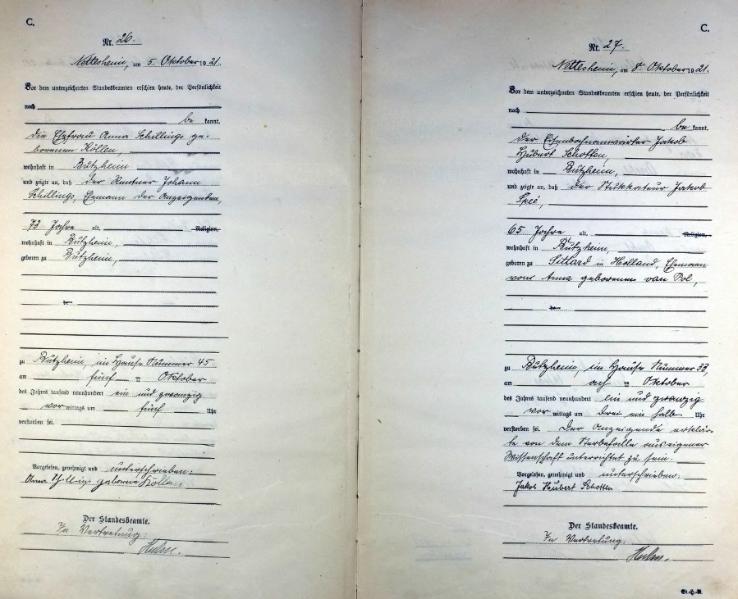 C.
Nr. 26.
Nettesheim, am 5. Oktober 1921.
Vor dem unterzeichneten Standesbeamten erschien heute, der Persönlichkeit
nach
be kannt,
die Ehefrau Anna Schillings ge-
borenen Köllen
wohnhaft in Butzheim
und zeigte an, daß der Rentner Johann
Schillings, Ehemann der Anzeigenden,
73 Jahre alt, Religion,
wohnhaft in Butzheim,
geboren zu Butzheim,
zu Butzheim, im Hause Nummer 45
am fünf ten Oktober
des Jahres tausend neunhundert ein und zwanzig
vor mittags um fünf Uhr
verstorben sei.
Vorgelesen, genehmigt und unterschrieben:
Anna Schillings geborene Köllen
Der Standesbeamte.
In Vertretung:
C.
Nr. 27.
Nettesheim, am 8. Oktober 1921.
Vor dem unterzeichneten Standesbeamten erschien heute, der Persönlichkeit
nach
be kannt,
der Eisenbahnanwärter Jakob
Hubert Schotten,
wohnhaft in Butzheim,
und zeigte an, daß der Stukkateur Jakob
65 Jahre alt, Religion,
wohnhaft in Butzheim,
geboren zu Sittard in Holland, Ehemann
von Anna geborenen van Pol,
zu Butzheim, im Hause Nummer
am ach ten Oktober
des Jahres tausend neunhundert ein und zwanzig
vor mittags um drei ein halb Uhr
verstorben sei. Der Anzeigende erklär-
te von dem Sterbefalle aus eigener
Wissenschaft unterrichtet zu sein.
Vorgelesen, genehmigt und unterschrieben:
Jakob Hubert Schotten
Der Standesbeamte.
In Vertretung: